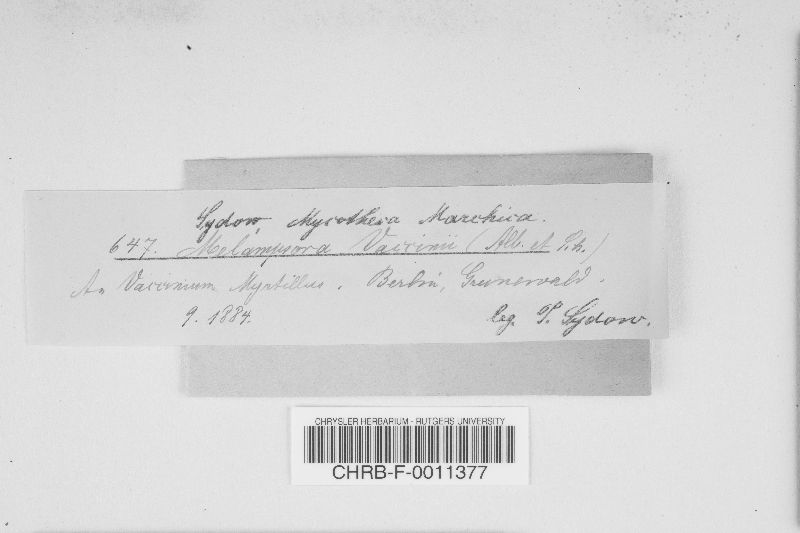 Sydow, Mycotheca Marchica.
647. Melampsora Vaccinii (Alb. et Sch.)
An Vaccinium Myrtillus. Berlin, Grunewald.
9. 1884. leg. P. Sydow.
CHRYSLER HERBARIUM - RUTGERS UNIVERSITY
CHRB-F-0011377